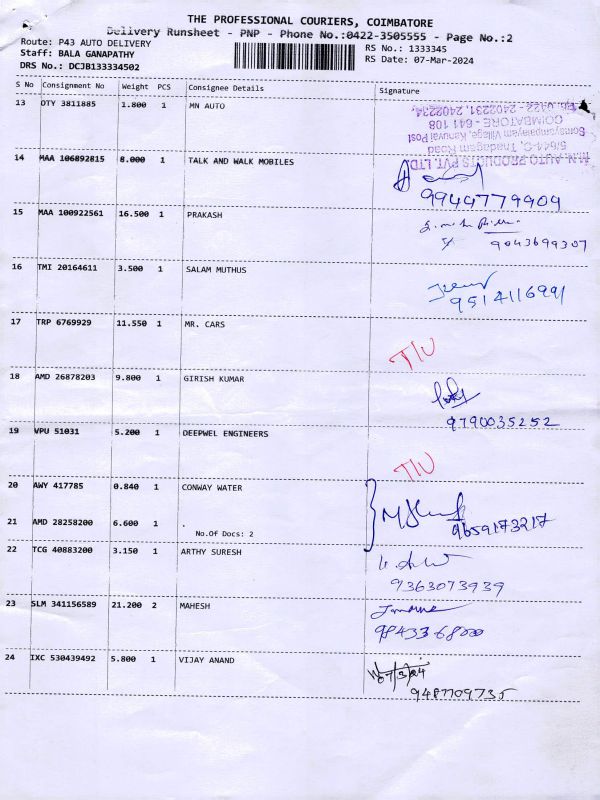 THE PROFESSIONAL COURIERS, COIMBATORE
Delivery Runsheet - PNP - Phone No.:0422-3505555 - Page No.:2
Route: P43 AUTO DELIVERY
Staff: BALA GANAPATHY
DRS No.: DCJB133334502
RS No.: 1333345
RS Date: 07-Mar-2024
S No Consignment No Weight PCS Consignee Details Signature
13 OTY 3811885 1.800 1 MN AUTO
AUTO PRODUCTS PVT. LTD
5/644-C, Thadagam Road
Somayampalayam Village, Kanuvai Post
COIMBATORE - 641 108
Ph: 0422 - 2402231, 2402234
14 MAA 106892815 8.000 1 TALK AND WALK MOBILES
9944779909
15 MAA 100922561 16.500 1 PRAKASH
9043699307
16 TMI 20164611 3.500 1 SALAM MUTHUS
9514116991
17 TRP 6769929 11.550 1 MR. CARS
T/U
18 AMD 26878203 9.800 1 GIRISH KUMAR
9790035252
19 VPU 51031 5.200 1 DEEPWEL ENGINEERS
T/U
20 AWY 417785 0.840 1 CONWAY WATER
21 AMD 28258200 6.600 1 .
No.Of Docs: 2
9659173217
22 TCG 40883200 3.150 1 ARTHY SURESH
9363073939
23 SLM 341156589 21.200 2 MAHESH
24 IXC 530439492 5.800 1 VIJAY ANAND
07/3/24
9487709735